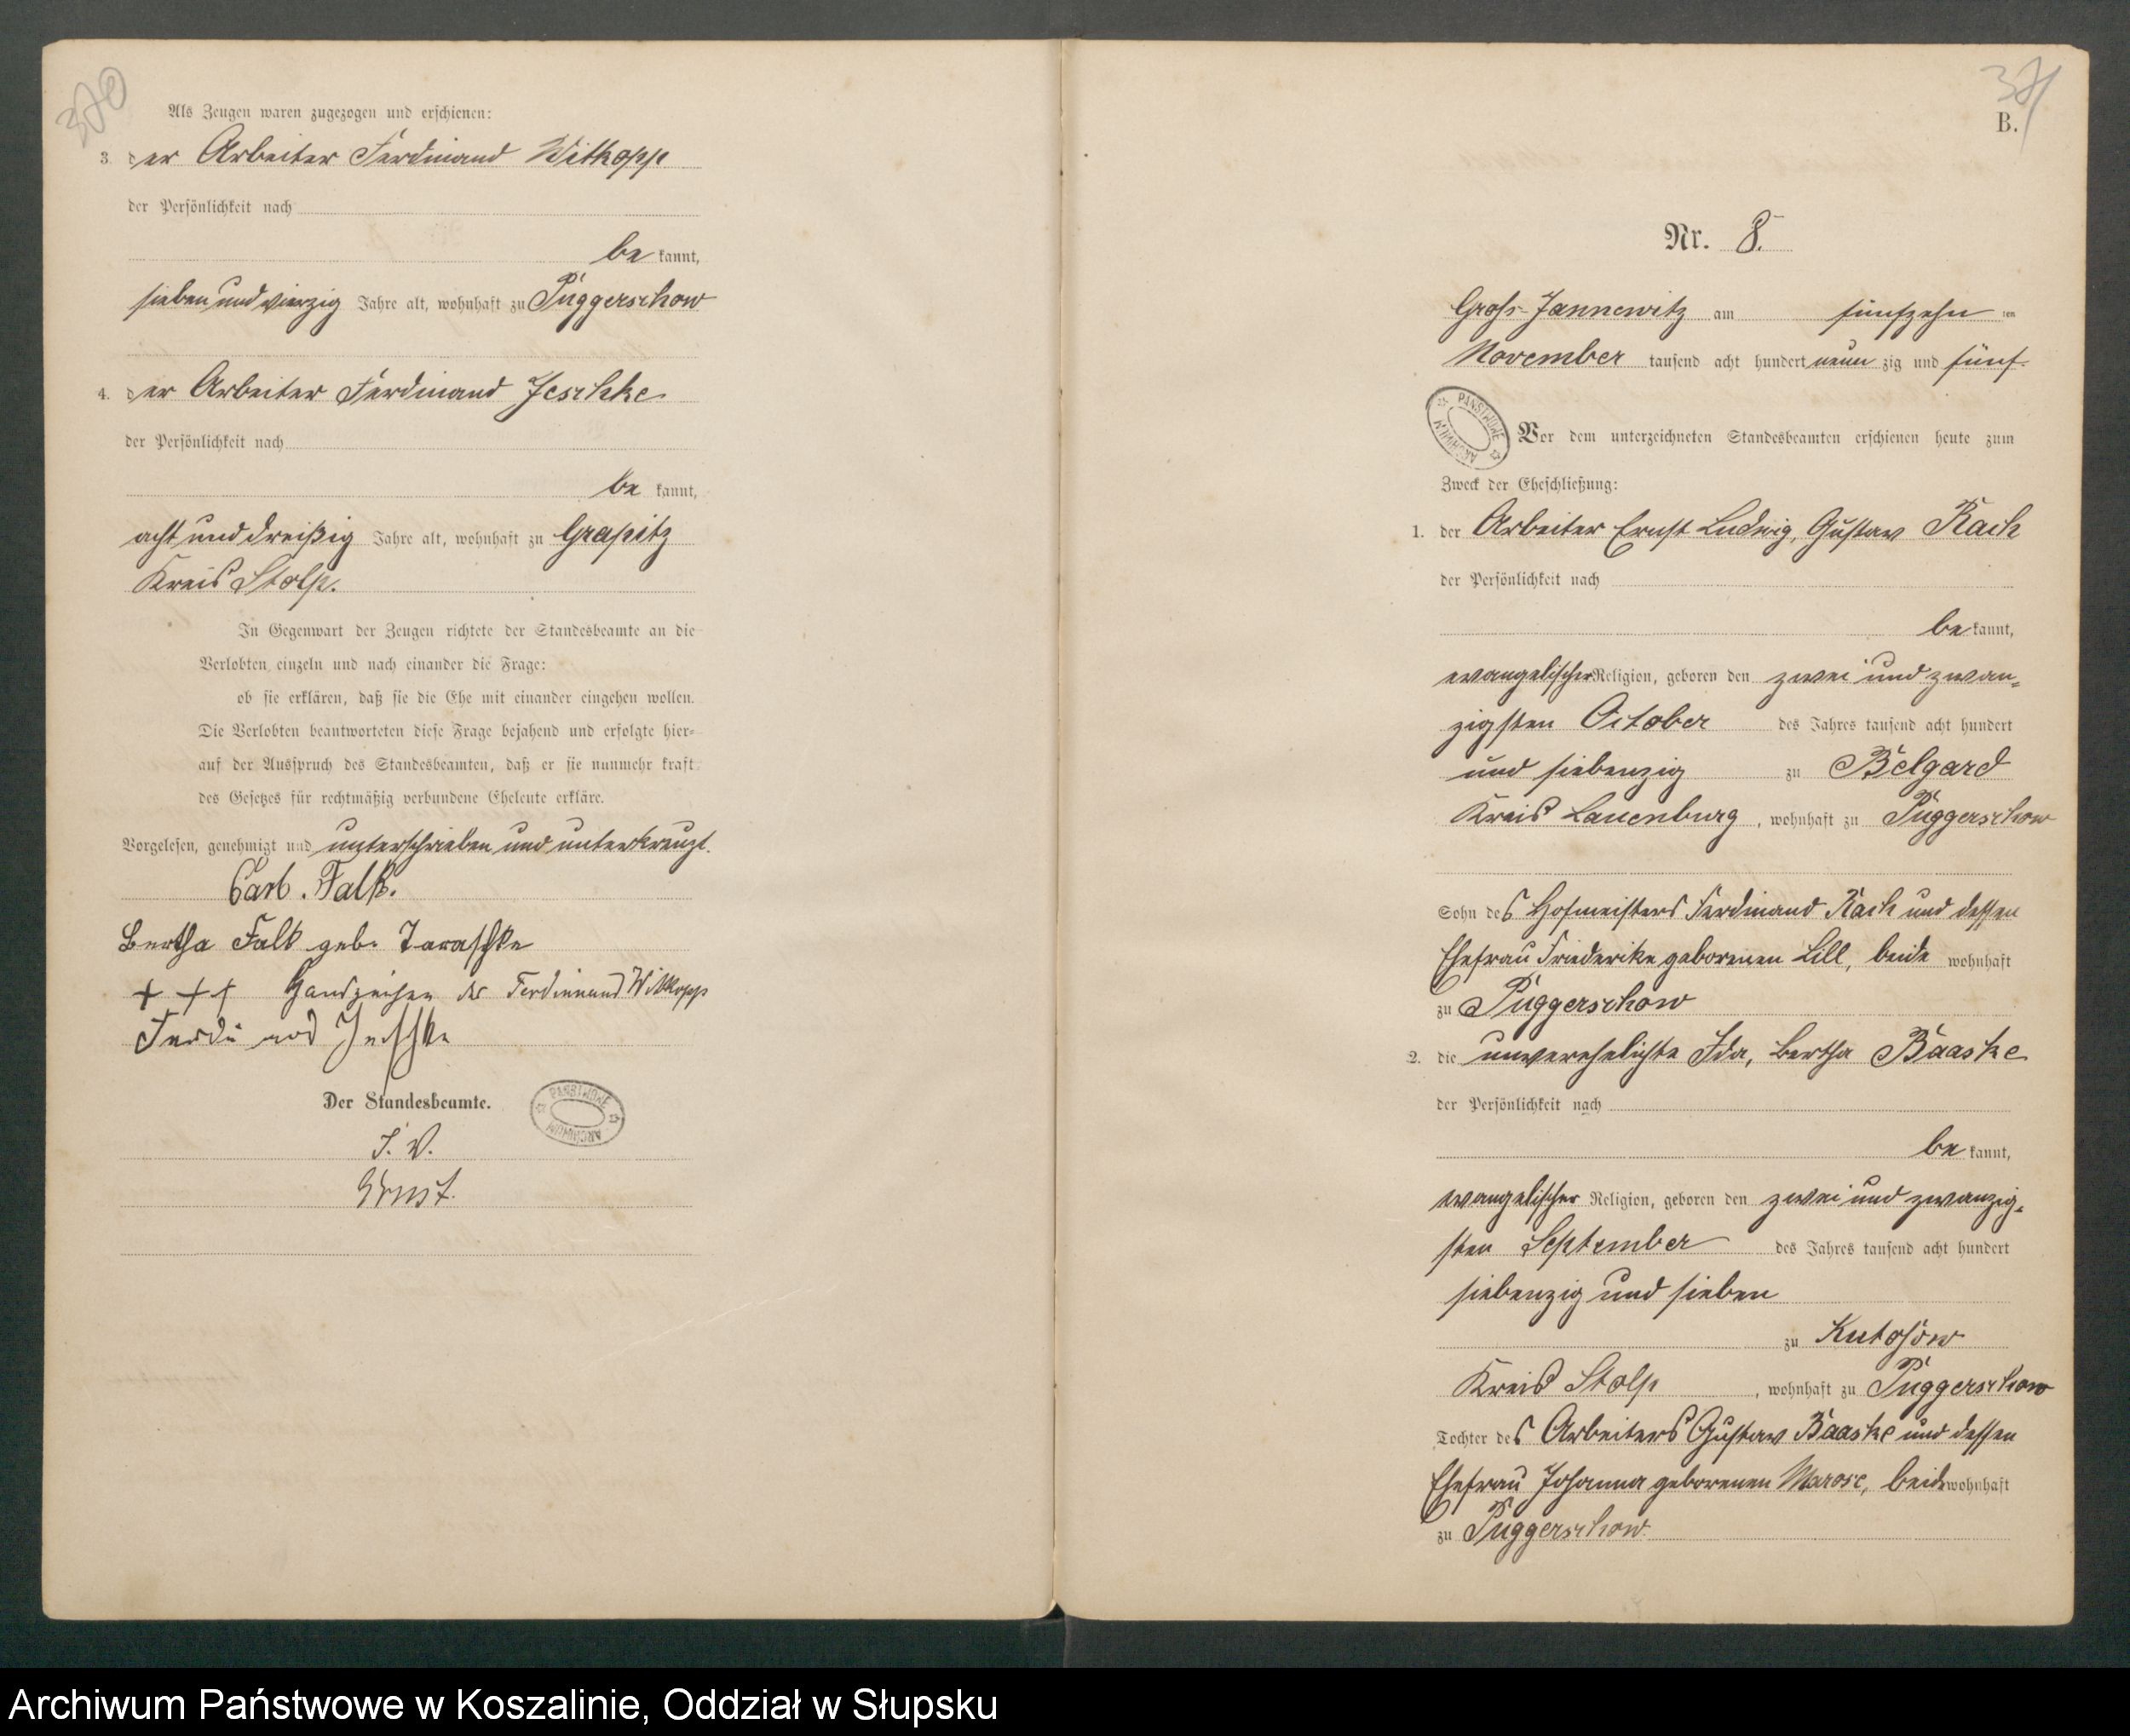 370
Als Zeugen waren zugezogen und erschienen:
3. der Arbeiter Ferdinand Witkopp
der Persönlichkeit nach
be kannt,
sieben und vierzig Jahre alt, wohnhaft zu Puggerschow
4. der Arbeiter Ferdinand Jeschke
der Persönlichkeit nach
be kannt,
acht und dreißig Jahre alt, wohnhaft zu Grapitz
Kreis Stolp.
In Gegenwart der Zeugen richtete der Standesbeamte an die
Verlobten einzeln und nach einander die Frage:
ob sie erklären, daß sie die Ehe mit einander eingehen wollen.
Die Verlobten beantworteten diese Frage bejahend und erfolgte hier-
auf der Ausspruch des Standesbeamten, daß er sie nunmehr kraft
des Gesetzes für rechtmäßig verbundene Eheleute erkläre.
Vorgelesen, genehmigt und unterschrieben und unterkreuzt.
Carl. Falk.
Bertha Falk geb. Taraschke
+ + + Handzeichen des Ferdinand Witkopp
Ferdinand Jeschke
Der Standesbeamte.
PAŃSTWOWE ARCHIWUM
I. V.
Ernst.
371
B.
Nr. 8.
Groß-Jannewitz am fünfzehn ten
November tausend acht hundert neun zig und fünf.
PAŃSTWOWE ARCHIWUM
Vor dem unterzeichneten Standesbeamten erschienen heute zum
Zweck der Eheschließung:
1. der Arbeiter Ernst Ludwig, Gustav Rach
der Persönlichkeit nach
be kannt,
evangelischer Religion, geboren den zwei und zwan-
zigsten October des Jahres tausend acht hundert
und siebenzig zu Belgard
Kreis Lauenburg, wohnhaft zu Puggerschow
Sohn des Hofmeisters Ferdinand Rach und dessen
Ehefrau Friederike geborenen Lill, beide wohnhaft
zu Puggerschow
2. die unverehelichte Ida, Bertha Baaske
der Persönlichkeit nach
be kannt,
evangelischer Religion, geboren den zwei und zwanzig-
sten September des Jahres tausend acht hundert
siebenzig und sieben
zu Kutosow
Kreis Stolp, wohnhaft zu Puggerschow
Tochter des Arbeiters Gustav Baaske und dessen
Ehefrau Johanna geborenen Marose, beide wohnhaft
zu Puggerschow.
Archiwum Państwowe w Koszalinie, Oddział w Słupsku